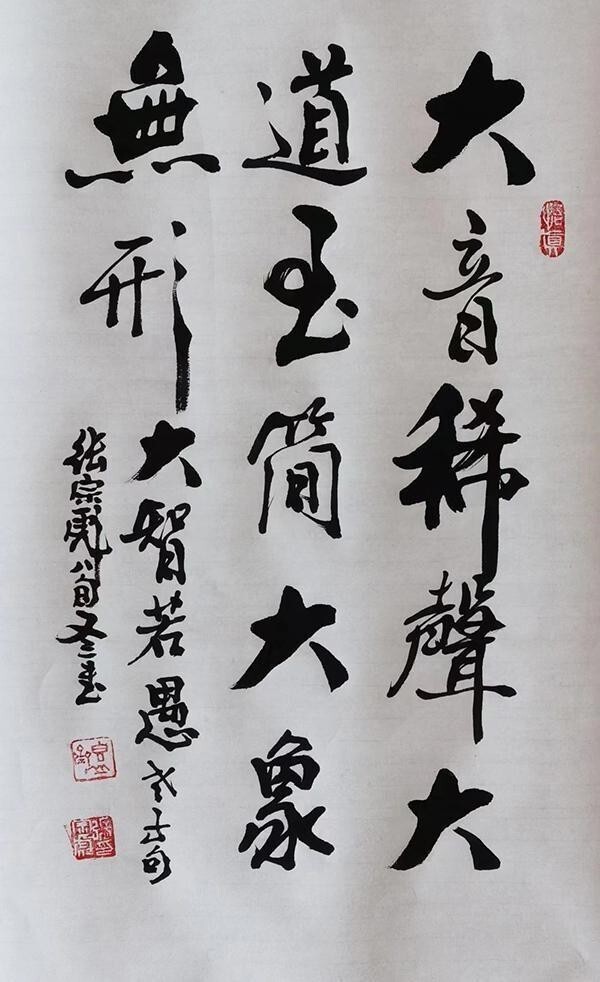 大音稀聲大
道至简大象
無形
大智若愚 老子句
张宗虎八旬又三书